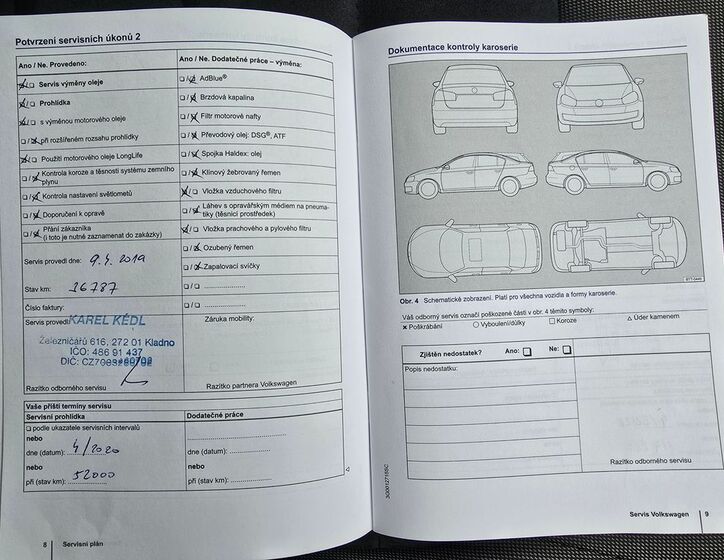 Potvrzení servisních úkonů 2
Ano / Ne. Provedeno:
Servis výměny oleje
Prohlídka
s výměnou motorového oleje
při rozšířeném rozsahu prohlídky
Použití motorového oleje LongLife
Kontrola koroze a těsnosti systému zemního
plynu
Kontrola nastavení světlometů
Doporučení k opravě
Přání zákazníka
(i toto je nutné zaznamenat do zakázky)
Servis provedl dne: 9.4.2019
Stav km:
Číslo faktury:
Servis provedl: KAREL KÉDL
Železničářů 616, 272 01 Kladno
IČO: 486 91 437
Razítko odborného servisu
Ano / Ne. Dodatečné práce – výměna:
AdBlue®
Brzdová kapalina
Filtr motorové nafty
Převodový olej: DSG®, ATF
Spojka Haldex: olej
Klínový žebrovaný řemen
Vložka vzduchového filtru
Láhev s opravářským médiem na pneuma-
tiky (těsnicí prostředek)
Vložka prachového a pylového filtru
Ozubený řemen
Zapalovací svíčky
Záruka mobility:
Razítko partnera Volkswagen
Vaše příští termíny servisu
Servisní prohlídka
podle ukazatele servisních intervalů
nebo
dne (datum): 4/2020
nebo
při (stav km): 52000
Dodatečné práce
nebo
dne (datum):
nebo
při (stav km):
8 Servisní plán
Dokumentace kontroly karoserie
Obr. 4 Schematické zobrazení. Platí pro všechna vozidla a formy karoserie.
Váš odborný servis označí poškozené části v obr. 4 těmito symboly:
× Poškrábání ○ Vyboulení/důlky □ Koroze △ Úder kamenem
Zjištěn nedostatek? Ano: Ne:
Popis nedostatku:
Razítko odborného servisu
Servis Volkswagen 9